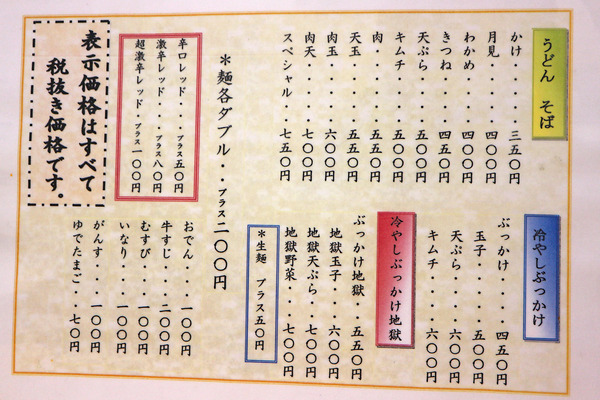 うどん そば
かけ・・・・三五〇円
月見・・・・四〇〇円
わかめ・・・四〇〇円
きつね・・・四五〇円
天ぷら・・・五〇〇円
キムチ・・・五〇〇円
肉・・・・・五五〇円
天玉・・・・五五〇円
肉玉・・・・六〇〇円
肉天・・・・七〇〇円
スペシャル・・七五〇円
＊麺各ダブル・・プラス二〇〇円
辛口レッド・・・プラス五〇円
激辛レッド・・・プラス八〇円
超激辛レッド・・プラス一〇〇円
表示価格はすべて
税抜き価格です。
冷やしぶっかけ
ぶっかけ・・・四五〇円
玉子・・・・五〇〇円
天ぷら・・・六〇〇円
キムチ・・・六〇〇円
冷やしぶっかけ地獄
ぶっかけ地獄・・五五〇円
地獄玉子・・・六〇〇円
地獄天ぷら・・七〇〇円
地獄野菜・・・七〇〇円
＊生麺 プラス五〇円
おでん・・・一〇〇円
牛すじ・・・二〇〇円
むすび・・・一〇〇円
いなり・・・一〇〇円
がんす・・・一〇〇円
ゆでたまご・・七〇円